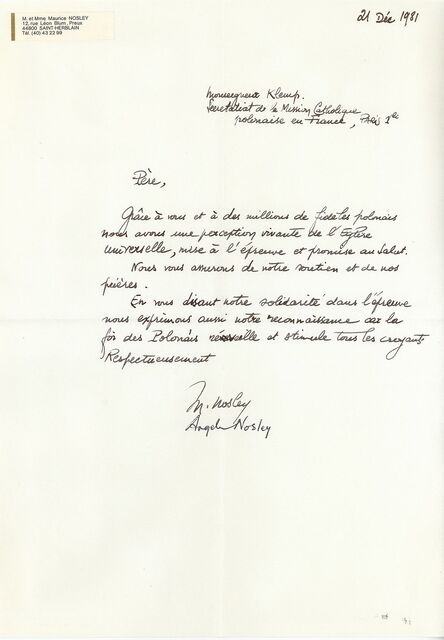 M. et Mme Maurice NOSLEY
12, rue Léon Blum, Preux
44800 SAINT-HERBLAIN
Tél. (40) 43 22 99
21 Déc 1981
Monseigneur Klemp.
Secrétariat de la Mission Catholique
polonaise en France, Paris 1er
Père,
Grâce à vous et à des millions de fidèles polonais
nous avons une perception vivante de l'Eglise
universelle, mise à l'épreuve et promise au Salut.
Nous vous assurons de notre soutien et de nos
prières.
En vous disant notre solidarité dans l'épreuve
nous exprimons aussi notre reconnaissance car la
foi des Polonais réveille et stimule tous les croyants
Respectueusement
M. Nosley
Angele Nosley